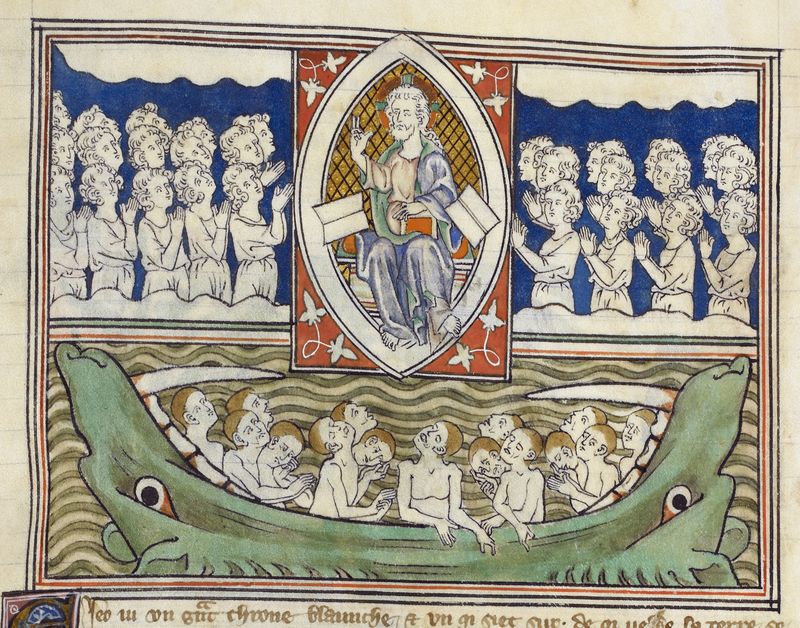 Jeo ui un gͣt throne blaunche & un qi siet sur. de qi ue la terre